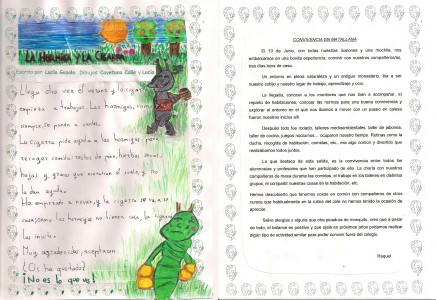 LA HORMIGA Y LA CIGARRA
Escrito por: Lucía Dibujos: Cayetana Calle y Lucía
Llegó otra vez el verano y la cigarra
empieza a trabajar. Las hormigas, como
siempre, se ponen a cantar.
La cigarra pide ayuda a las hormigas para
recoger comida: restos de pan, hierbas
hojas y granos que encuentran en el suelo, y no
le dan ayuda.
Ha empezado a nevar, y la cigarra se va a su
casa, como las hormigas no tienen casa, la cigarra
las invita.
Muy agradecidas, aceptaron.
¿Os ha gustado?
¡No es lo que ves!
CONVIVENCIA EN MATALLANA
El 13 de Junio, con todas nuestras ilusiones y una mochila, nos
embarcamos en una bonita experiencia: convivir con nuestros compañeros/as,
tres días lejos de casa.
Un entorno en plena naturaleza y un antiguo monasterio, iba a ser
nuestro cobijo y nuestro lugar de trabajo, aprendizaje y ocio.
La llegada, conocer a los monitores que nos iban a acompañar, el
reparto de habitaciones, conocer las normas para una buena convivencia y
explorar el entorno en el que nos íbamos a mover con un paseo en calesa
fueron nuestros inicios allí.
Después todo fue rodado, talleres medioambientales, taller de jabones,
taller de cocina, juegos nocturnos... ocuparon nuestro tiempo. Rutinas como la
ducha, recogida de habitación, comidas, etc, era algo común y divertido que
realizábamos todos juntos.
Lo que destaco de esta salida, es la convivencia entre todos los
alumnos/as y profesores que han participado de ella. La charla con nuestros
compañeros de mesa durante las comidas, el trabajo en los talleres en distintos
grupos, el compartir nuestras cosas en la habitación, etc.
Hemos descubierto que tenemos cosas en común con compañeros de otros
cursos que habitualmente en la rutina del cole no hemos tenido la ocasión de
apreciar.
Salvo alergias y alguna que otra picadura de mosquito, creo que a pesar
de todo, el balance es positivo y que ojalá en próximos años podamos realizar
algún tipo de actividad similar para poder conocer fuera del colegio.
Raquel